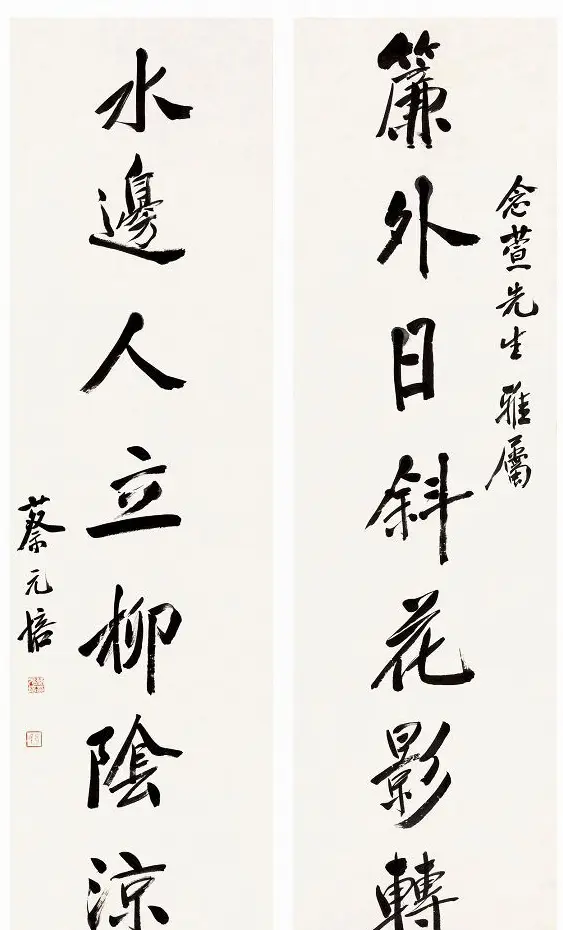 念萱先生雅屬
簾外日斜花影轉
水邊人立柳陰涼
蔡元培